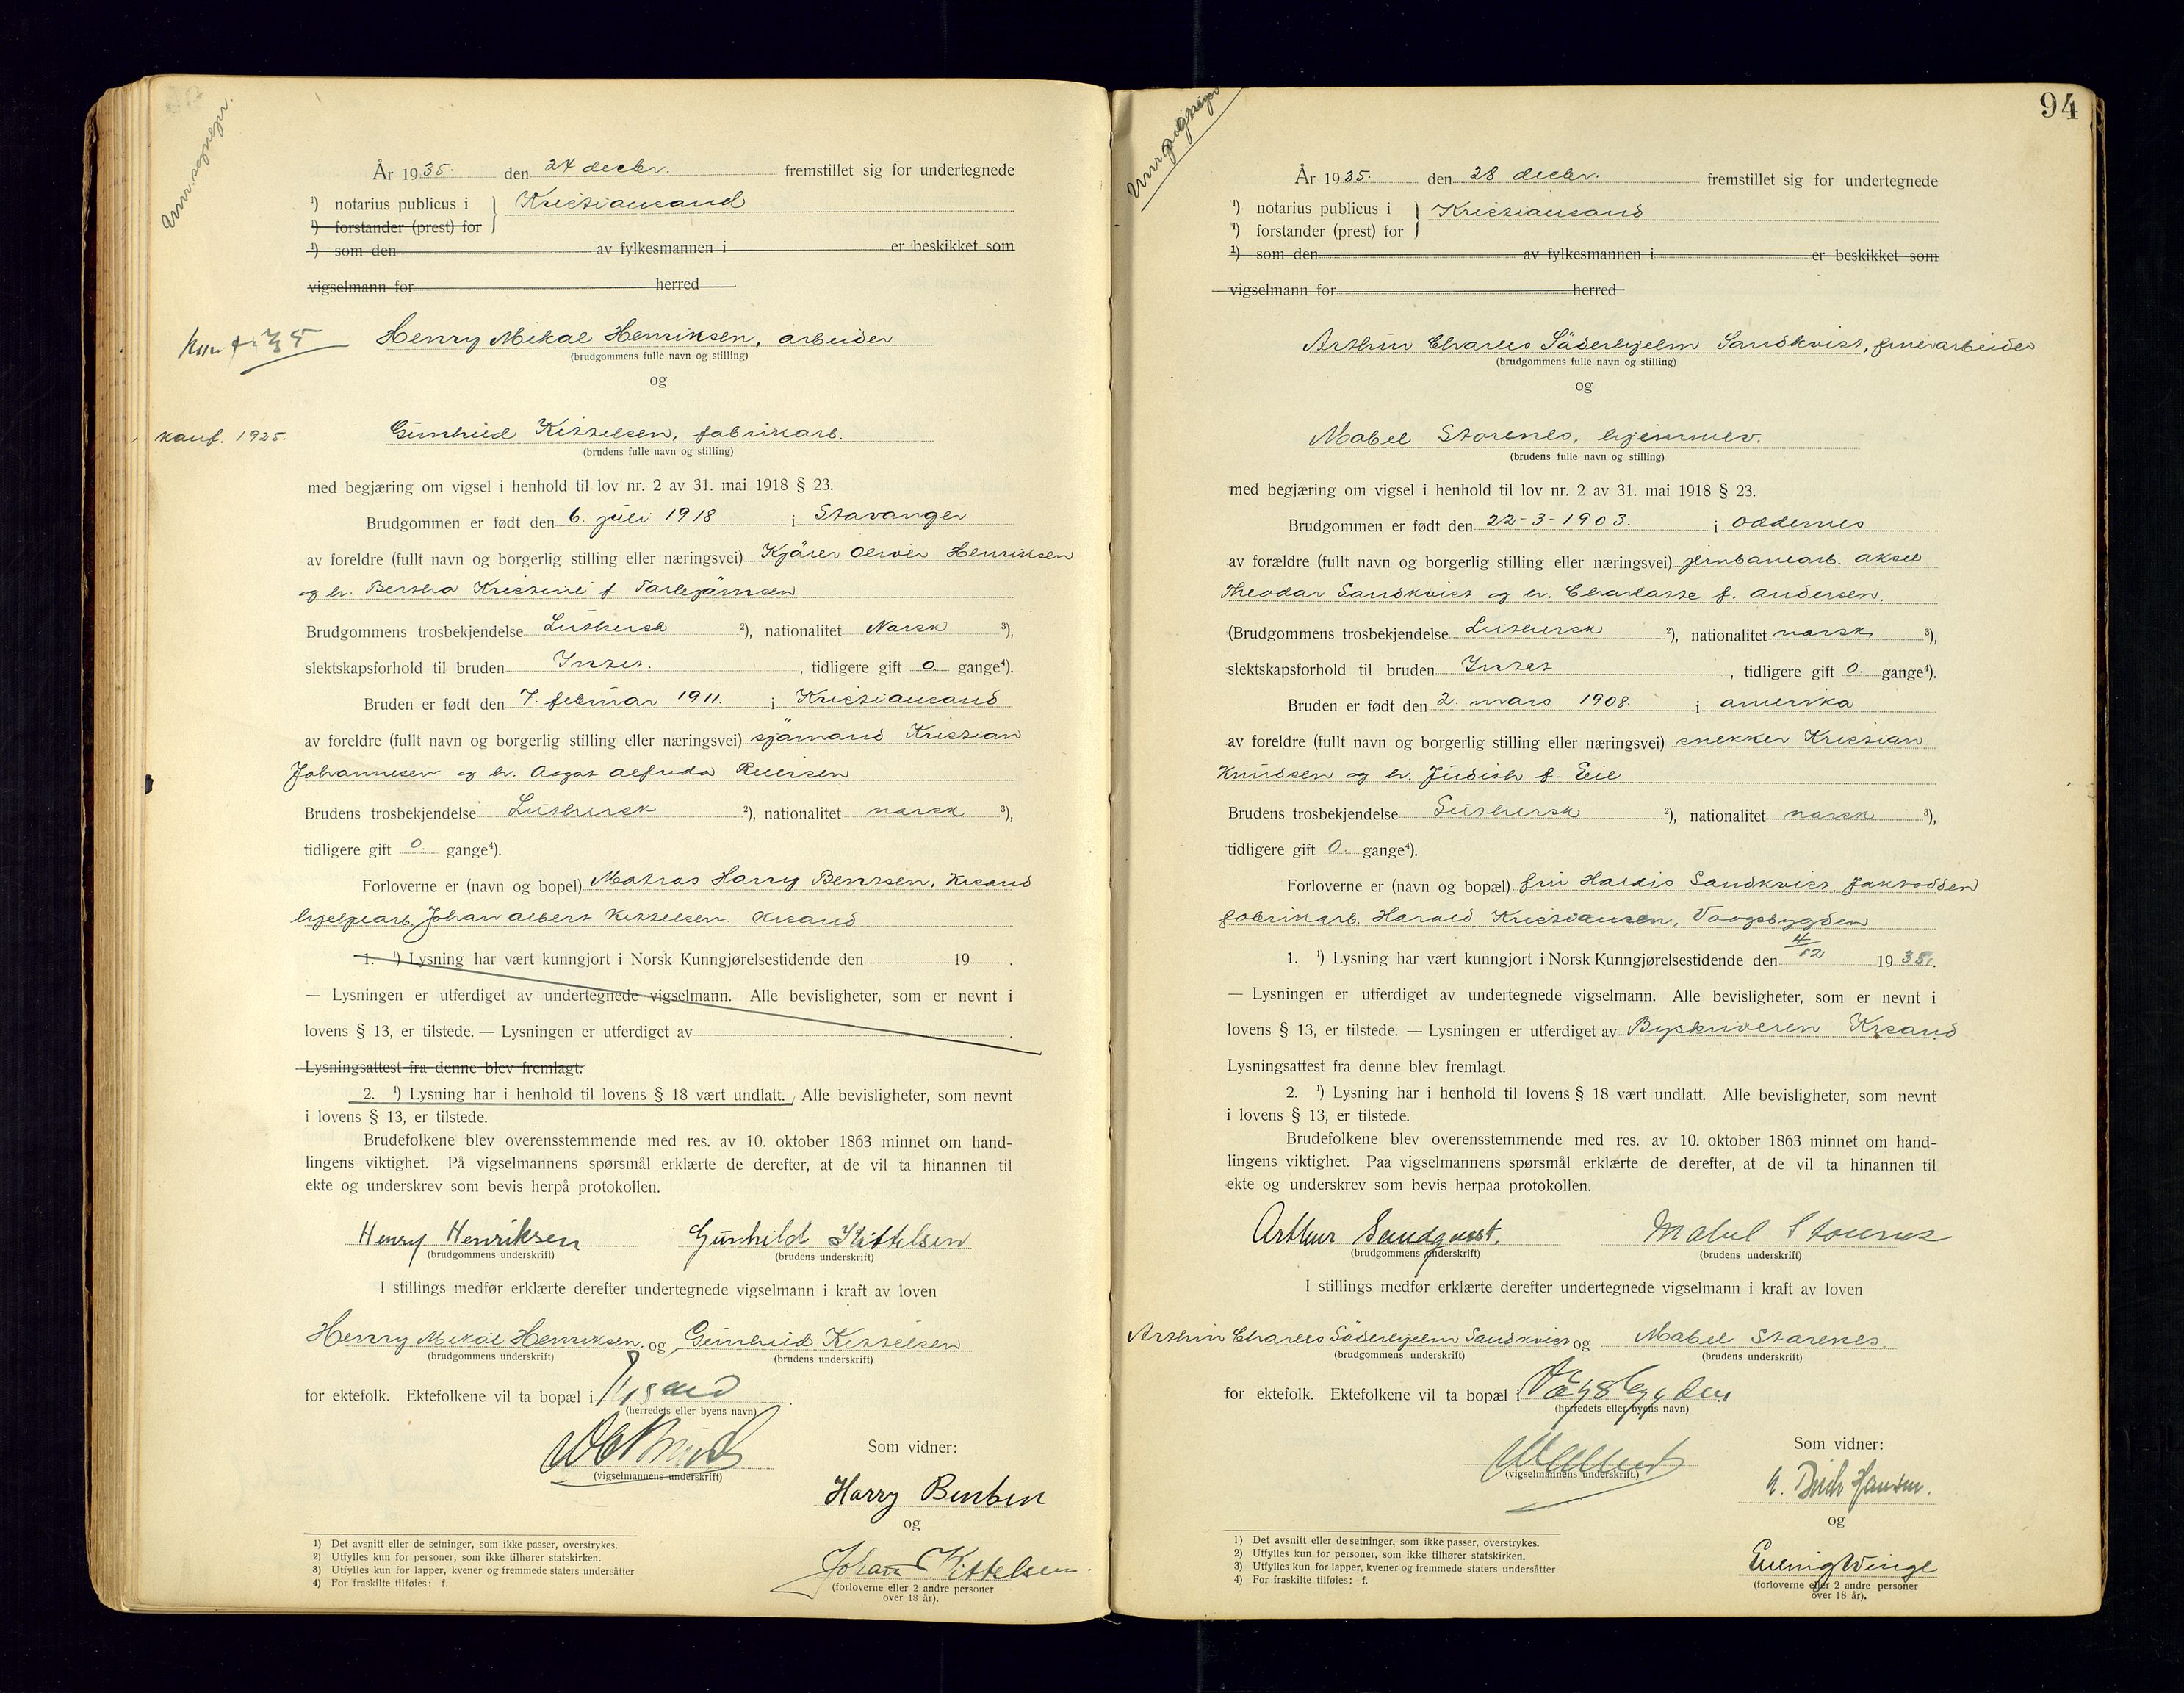 År 1935. den 24 decbr. fremstillet sig for undertegnede
¹) notarius publicus i Kristiansand
¹) forstander (prest) for
¹) som den av fylkesmannen i er beskikket som
vigselmann for herred
Henry Mikal Henriksen, arbeider
(brudgommens fulle navn og stilling)
og
konf. 1925.
Gunhild Kittelsen, fabrikarb.
(brudens fulle navn og stilling)
med begjæring om vigsel i henhold til lov nr. 2 av 31. mai 1918 § 23.
Brudgommen er født den 6. juli 1918 i Stavanger
av foreldre (fullt navn og borgerlig stilling eller næringsvei) Kjärer Oliver Henriksen
og h. Bertha Kristine f Torbjörnsen
Brudgommens trosbekjendelse Luthersk ²), nationalitet Norsk ³),
slektskapsforhold til bruden Intet. , tidligere gift 0. gange⁴).
Bruden er født den 7. februar 1911. i Kristiansand
av foreldre (fullt navn og borgerlig stilling eller næringsvei) sjömand Kristian
Johannesen og h. Aagot Alfrida Reiersen
Brudens trosbekjendelse Luthersk ²), nationalitet norsk ³),
tidligere gift 0. gange⁴).
Forloverne er (navn og bopel) Matros Harry Bentsen, Krsand
hjelpearb. Johan Albert Kittelsen. Krsand
1. ¹) Lysning har vært kunngjort i Norsk Kunngjørelsestidende den 19 .
— Lysningen er utferdiget av undertegnede vigselmann. Alle bevisligheter, som er nevnt i
lovens § 13, er tilstede. — Lysningen er utferdiget av .
Lysningsattest fra denne blev fremlagt.
2. ¹) Lysning har i henhold til lovens § 18 vært undlatt. Alle bevisligheter, som nevnt
i lovens § 13, er tilstede.
Brudefolkene blev overensstemmende med res. av 10. oktober 1863 minnet om hand-
lingens viktighet. På vigselmannens spørsmål erklærte de derefter, at de vil ta hinannen til
ekte og underskrev som bevis herpå protokollen.
Henry Henriksen Gunhild Kittelsen
(brudgommens underskrift) (brudens underskrift)
I stillings medfør erklærte derefter undertegnede vigselmann i kraft av loven
Henry Mikal Henriksen. og Gunhild Kittelsen
(brudgommens underskrift) (brudens underskrift)
for ektefolk. Ektefolkene vil ta bopæl i Krsand .
(herredets eller byens navn)
(vigselmannens underskrift)
Som vidner:
Harry Bentsen
og
Johan A. Kittelsen.
(forloverne eller 2 andre personer
over 18 år).
1) Det avsnitt eller de setninger, som ikke passer, overstrykes.
2) Utfylles kun for personer, som ikke tilhører statskirken.
3) Utfylles kun for lapper, kvener og fremmede staters undersåtter
4) For fraskilte tilføies: f.
94
År 1935. den 28 decbr. fremstillet sig for undertegnede
¹) notarius publicus i Kristiansand
¹) forstander (prest) for
¹) som den av fylkesmannen i er beskikket som
vigselmann for herred
Arthur Charles Söderhjelm Sandkvist, finerarbeider
(brudgommens fulle navn og stilling)
og
Mabel Storenes, hjemmev.
(brudens fulle navn og stilling)
med begjæring om vigsel i henhold til lov nr. 2 av 31. mai 1918 § 23.
Brudgommen er født den 22-3-1903. i Oddernes
av forældre (fullt navn og borgerlig stilling eller næringsvei) jernbanearb. Aksel
Theodor Sandkvist og h. Charlotte f. Andersen.
(Brudgommens trosbekjendelse Luthersk ²), nationalitet norsk ³),
slektskapsforhold til bruden Intet , tidligere gift 0. gange⁴).
Bruden er født den 2. mars 1908. i amerika
av foreldre (fullt navn og borgerlig stilling eller næringsvei) snekker Kristian
Knudsen og h. Judith f. Eeie
Brudens trosbekjendelse Luthersk ²), nationalitet norsk ³),
tidligere gift 0. gange⁴).
Forloverne er (navn og bopæl) fru Haldis Sandkvist,
fabrikarb. Harald Kristiansen, Vaagsbygden
1. ¹) Lysning har vært kunngjort i Norsk Kunngjørelsestidende den 4/12 1935.
— Lysningen er utferdiget av undertegnede vigselmann. Alle bevisligheter, som er nevnt i
lovens § 13, er tilstede. — Lysningen er utferdiget av Byskriveren Krsand
Lysningsattest fra denne blev fremlagt.
2. ¹) Lysning har i henhold til lovens § 18 vært undlatt. Alle bevisligheter, som nevnt
i lovens § 13, er tilstede.
Brudefolkene blev overensstemmende med res. av 10. oktober 1863 minnet om hand-
lingens viktighet. Paa vigselmannens spørsmål erklærte de derefter, at de vil ta hinannen til
ekte og underskrev som bevis herpaa protokollen.
Arthur Sandqvist. Mabel Storenes
(brudgommens underskrift) (brudens underskrift)
I stillings medfør erklærte derefter undertegnede vigselmann i kraft av loven
Arthur Charles Söderhjelm Sandkvist og Mabel Storenes.
(brudgommens underskrift) (brudens underskrift)
for ektefolk. Ektefolkene vil ta bopæl i Vågsbygden
(herredets eller byens navn)
(vigselmannens underskrift.)
Som vidner:
Hansen.
og
(forloverne eller 2 andre personer
over 18 år).
1) Det avsnitt eller de setninger, som ikke passer, overstrykes.
2) Utfylles kun for personer, som ikke tilhører statskirken.
3) Utfylles kun for lapper, kvener og fremmede staters undersåtter
4) For fraskilte tilføies: f.